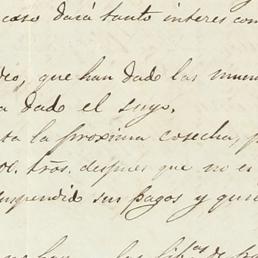 caso dará tanto interes com
deo, que han dado las mun
a dado el suyo.
ta la proxima cosecha, p
oc. trós, despues que no es
suspendió sus pagos y quie
no han las lib.as de fra